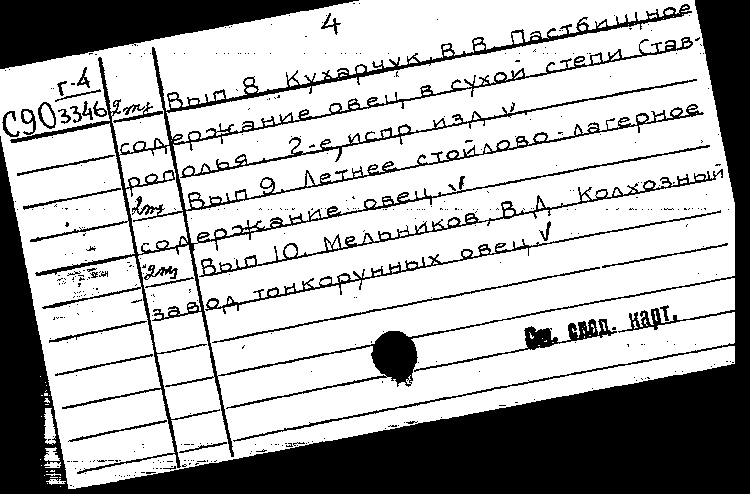 4
Г-4
С90 3346 2тх Вып 8. Кухарчук, В.В. Пастбищное
содержание овец в сухой степи Став-
рополья. 2-е, испр. изд. V.
2тх Вып 9. Летнее стойлово-лагерное
содержание овец. V
2тх Вып 10. Мельников, В.Д. Колхозный
завод тонкорунных овец V
См. след. карт.